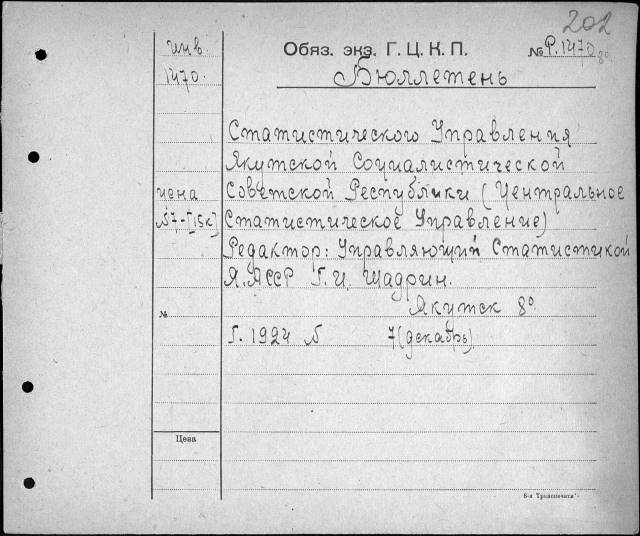 202
инв.
1470.
Обяз. экз. Г. Ц. К. П.
№ Р.1470 8º
Бюллетень
Статистического Управления
Якутской Социалистической
Советской Республики (Центральное
Статистическое Управление)
Редактор: Управляющий Статистикой
Я. АССР Г. И. Шадрин.
Якутск 8º
Г. 1924 № 7 (декабрь)
цена
№7-[15к]
№
Цена